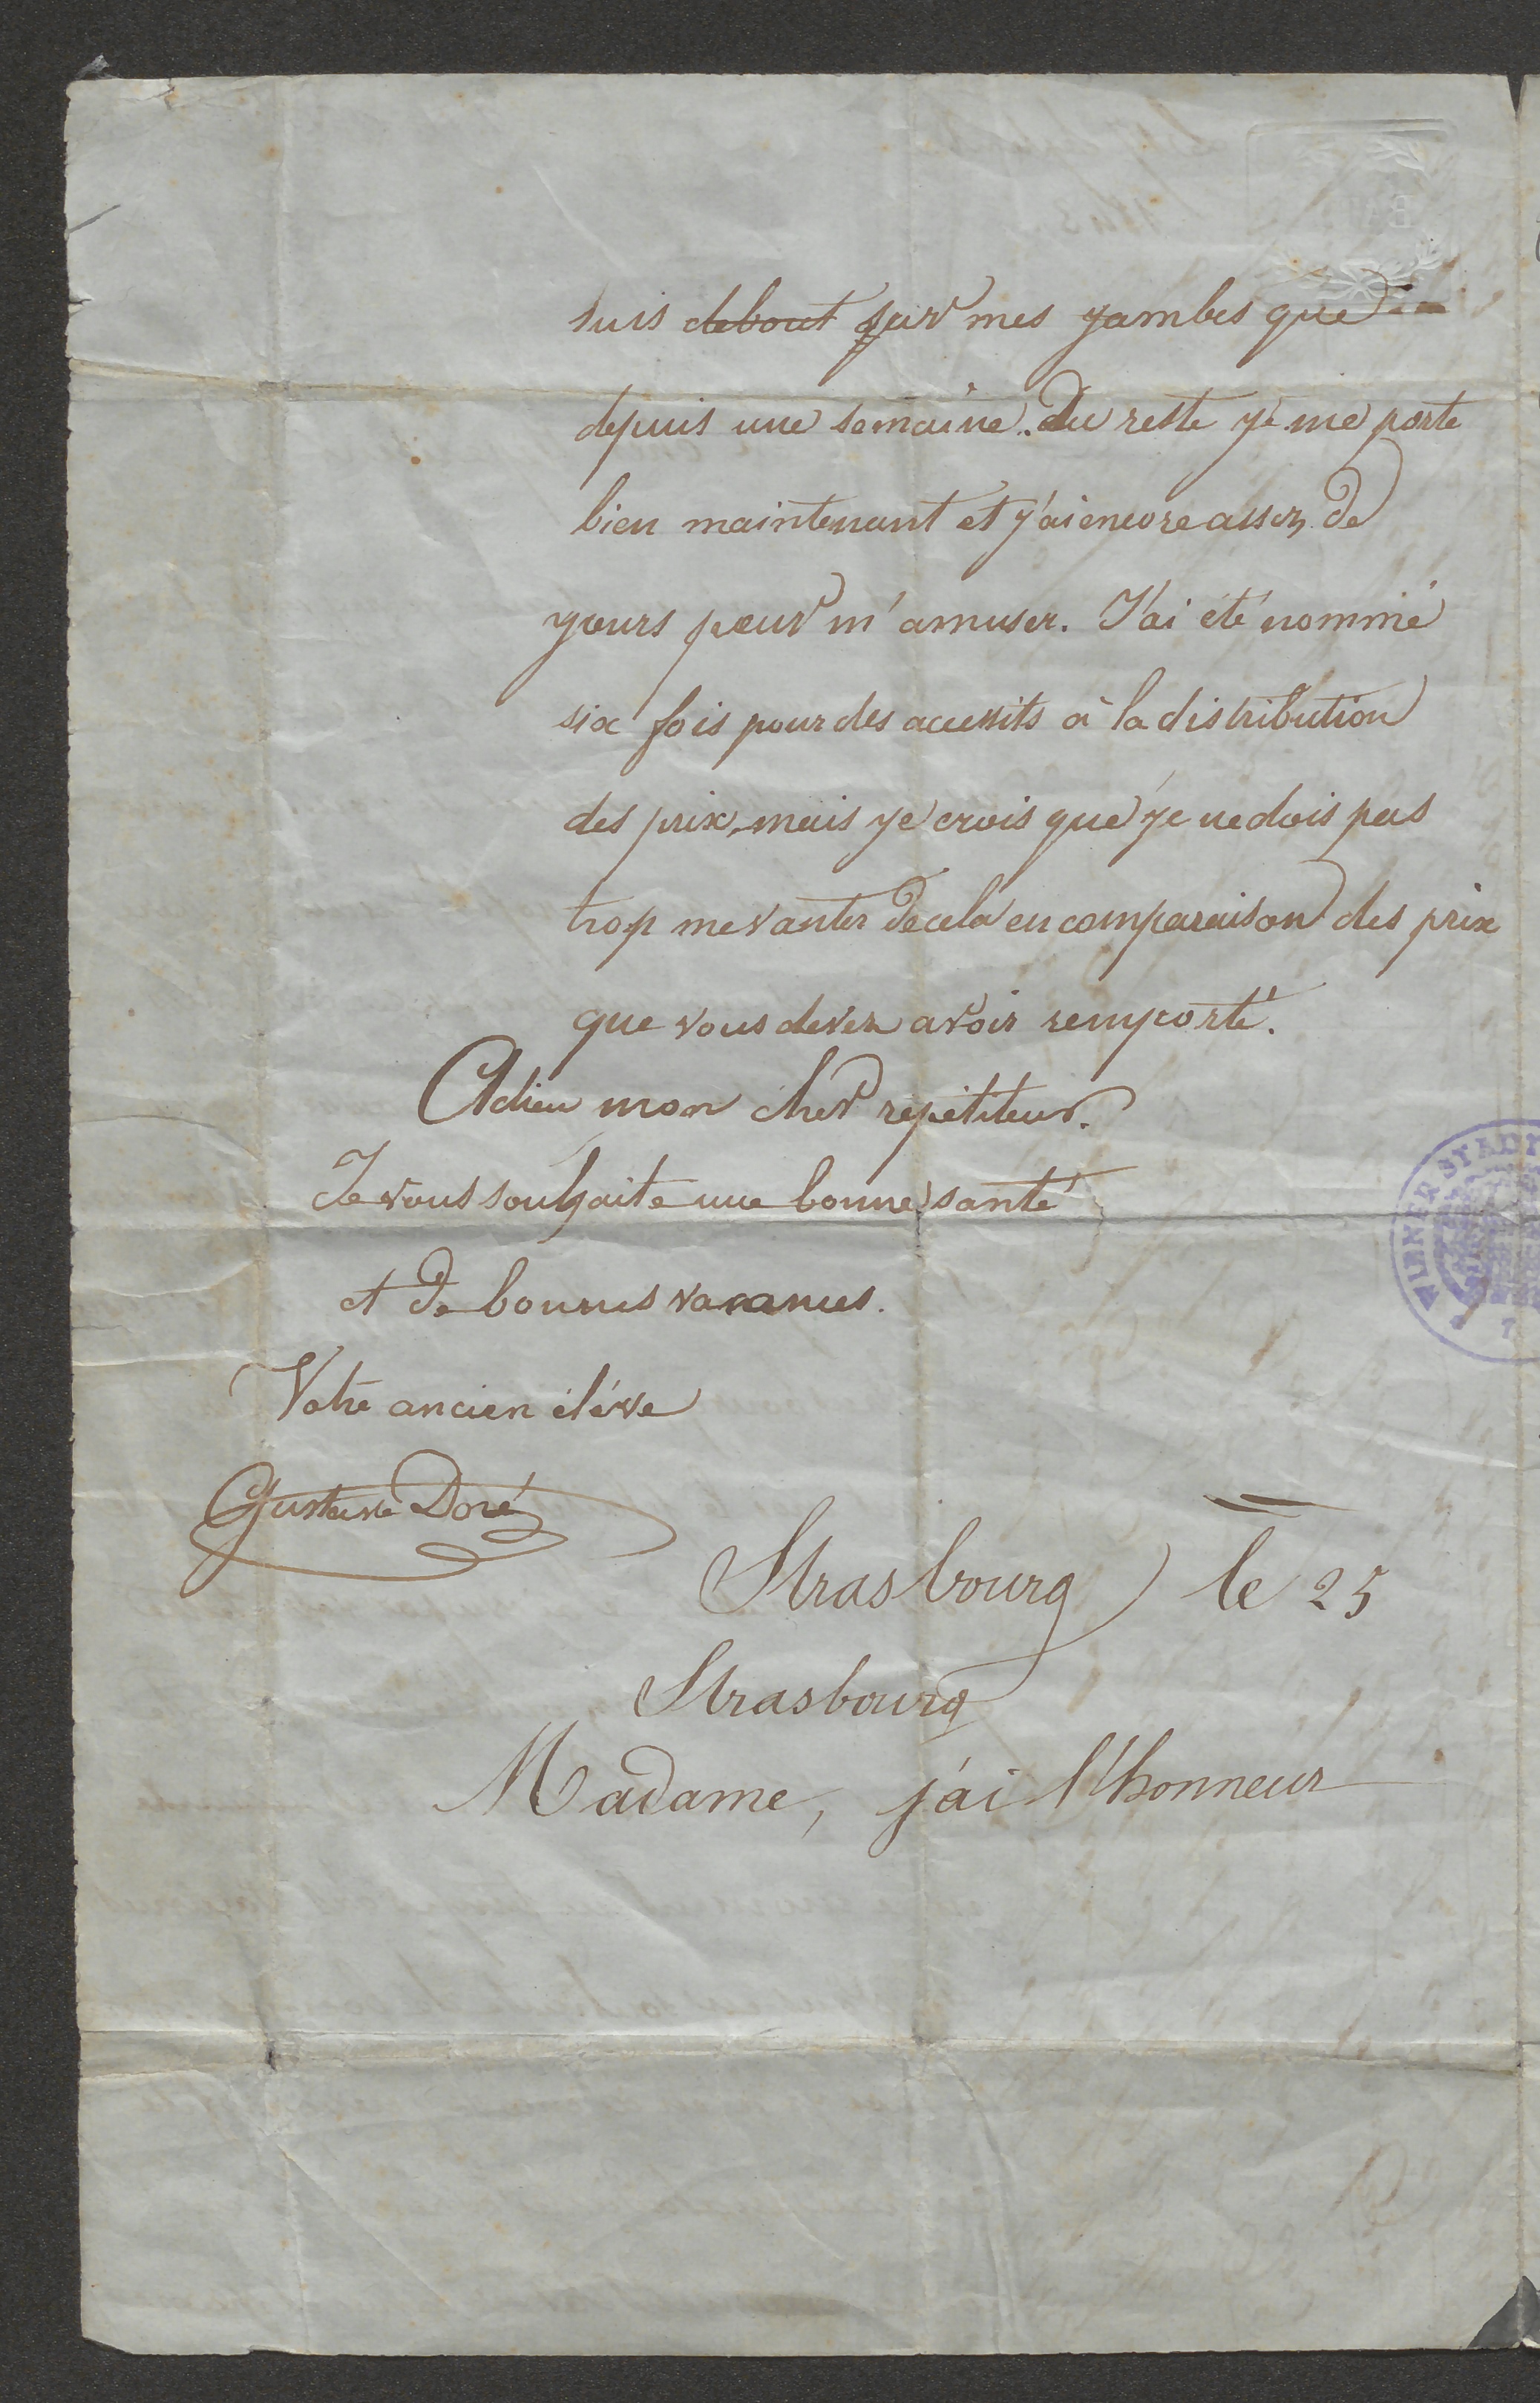 suis debout sur mes jambes que
depuis une semaine. Du reste je me porte
bien maintenant et j'ai encore assez de
jours pour m'amuser. J'ai été nommé
six fois pour des accessits à la distribution
des prix, mais je crois que je ne dois pas
trop me vanter de cela en comparaison des prix
que vous devez avoir remporté.
Adieu mon cher repétiteur.
Je vous souhaite une bonne santé
et de bonnes vacances.
Votre ancien éléve
Gustave Doré
Strasbourg le 25
Strasbourg
Madame, j'ai l'honneur
WIENER STADT